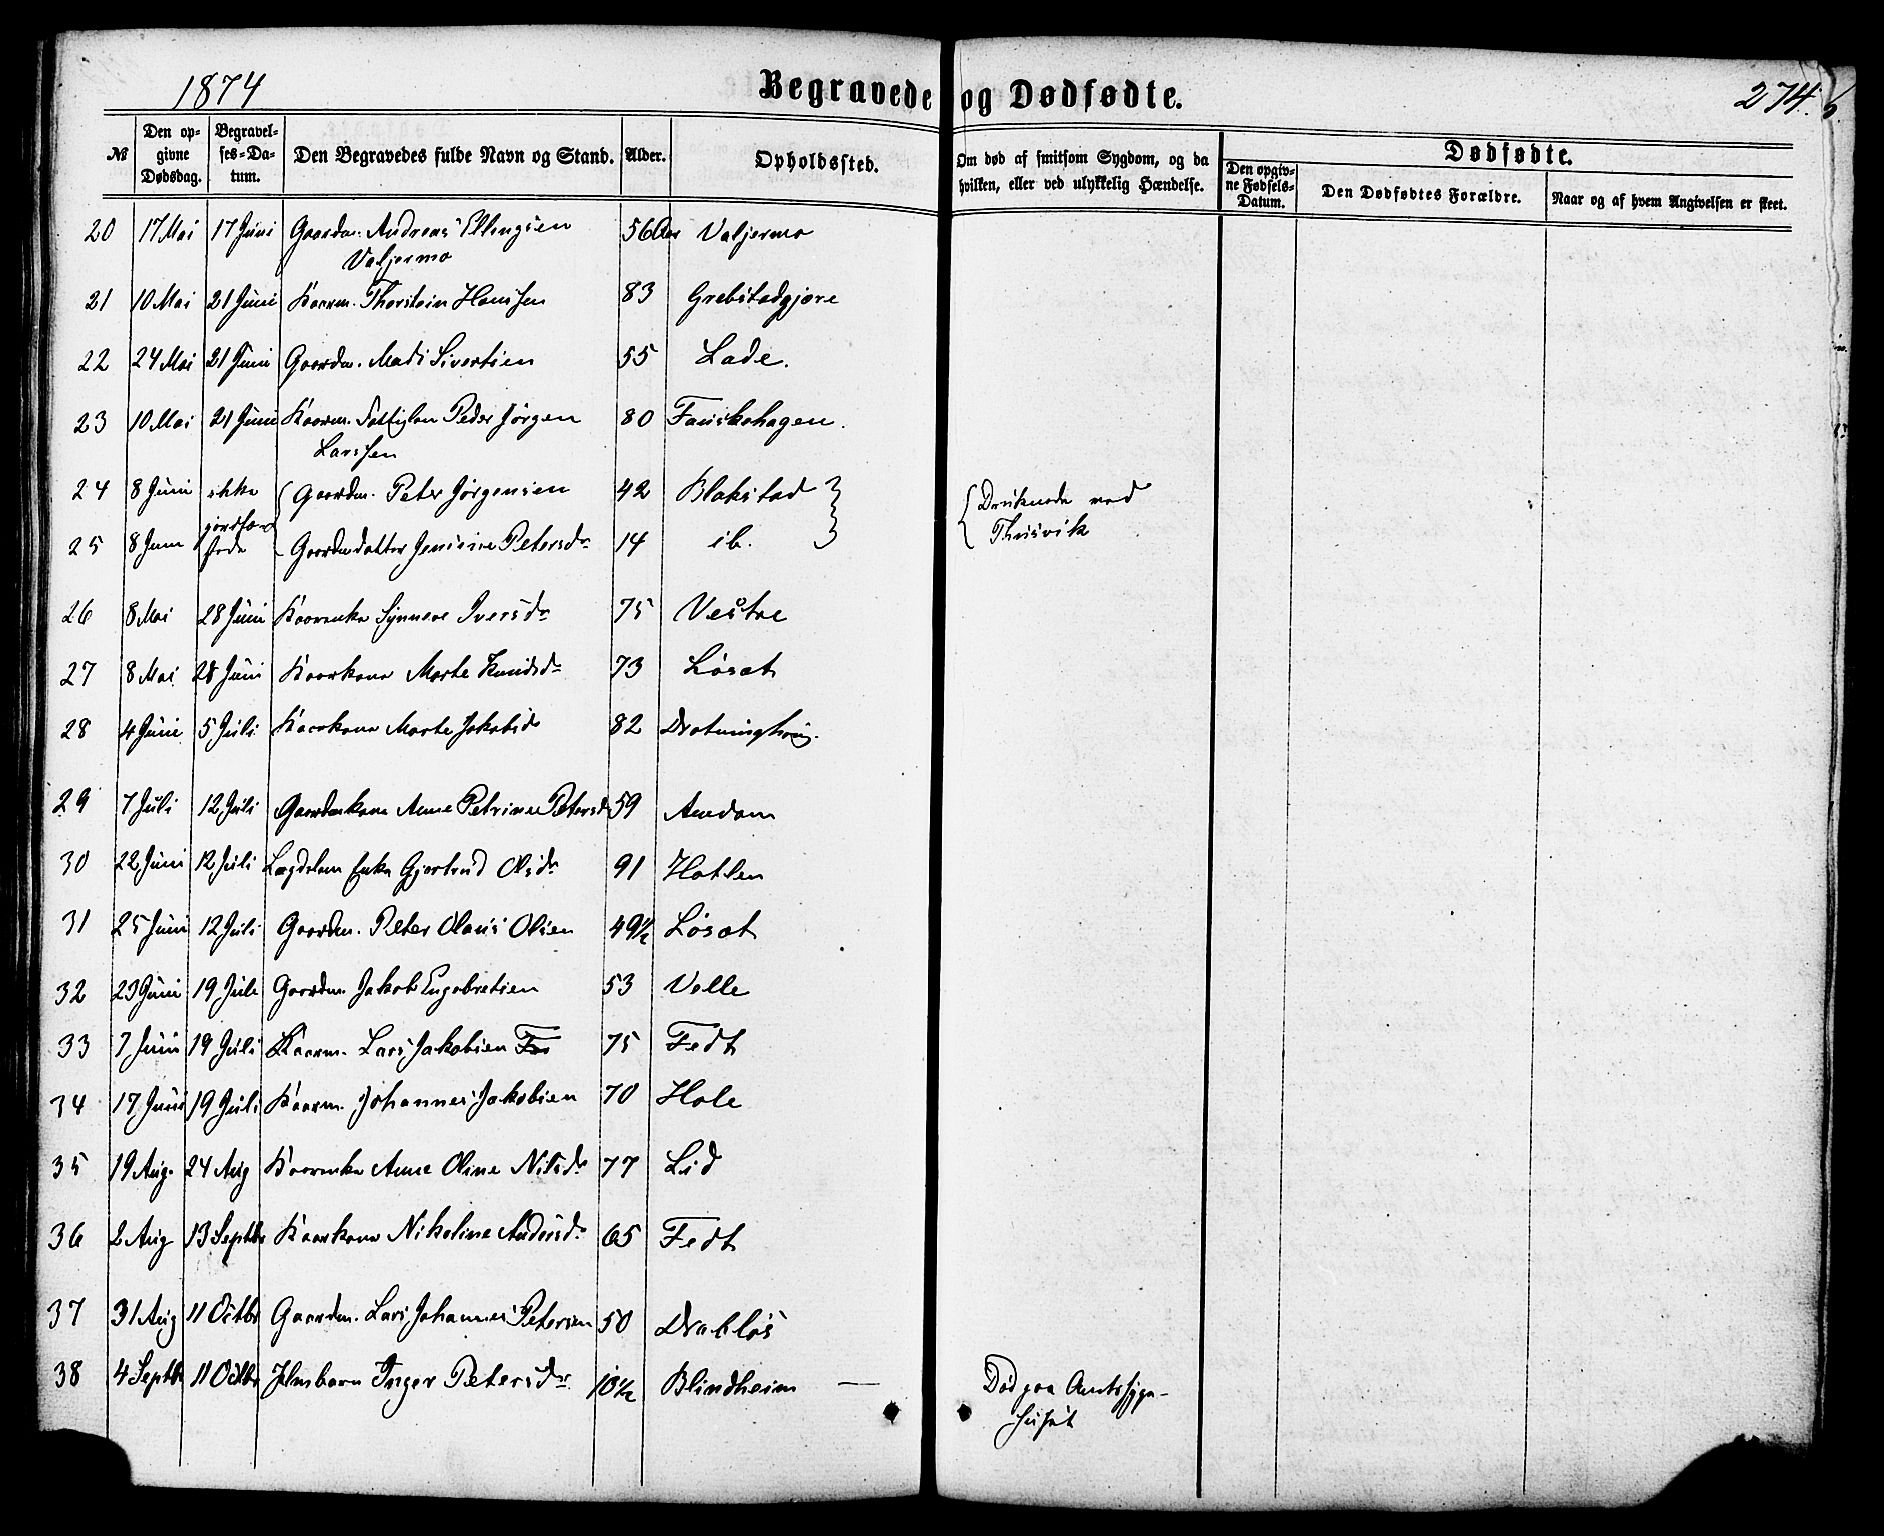 1874 Begravede og Dødfødte. 274.
№ Den opgivne Dødsdag. Begravelses-Datum. Den Begravedes fulde Navn og Stand. Alder. Opholdssted. Om død af smitsom Sygdom, og da hvilken, eller ved ulykkelig Hændelse. Dødfødte.
Den opgivne Fødsels-Datum. Den Dødfødtes Forældre. Naar og af hvem Angivelsen er skeet.
20 17 Mai 17 Juni Gaardm. Andreas Ellingsen 56 Aar Valjermo
Valjermo
21 10 Mai 21 Juni Kaarm. Thorstein Hanssen 83 Grebstadgjære
22 24 Mai 21 Juni Gaardm. Mads Sivertsen 55 Lade.
23 10 Mai 21 Juni Kaarm. Peder Jørgen 80 Fauskehagen.
Larssen
24 8 Juni ikke Gaardm. Peter Jørgensen 42 Blakstad Druknede ved
25 8 Juni Gaardmdatter Jensine Petersdr 14 ib. Thusvik
26 8 Mai 28 Juni Kaarenke Synneve Iversdr 75 Vestre
27 8 Mai 28 Juni Kaarkone Marte Knudsdr 73 Løset
28 4 Juni 5 Juli Kaarkone Marte Jakobsd 82
29 7 Juli 12 Juli Gaardmkone Anne Petrine Petersd 59 Amdam
30 22 Juni 12 Juli Lægdslem Enke Gjertrud Olsdr 91 Hatlen
31 25 Juni 12 Juli Gaardm. Peter Olaus Olsen 49½ Løset
32 23 Juni 19 Juli Gaardm. Jakob Engebretsen 53 Valle
33 7 Juni 19 Juli Kaarm. Lars Jakobsen 75 Fedt
34 17 Juni 19 Juli Kaarm. Johannes Jakobsen 70 Hole
35 19 Aug. 24 Aug Kaarenke Anne Oline Nilsdr 77 Lid
36 2 Aug 13 Septbr Kaarkone Nikoline Andersdr 65 Fedt
37 31 Aug 11 Octbr Gaardm. Lars Johannes Petersen 50 Drabløs
38 4 Septb 11 Octbr Inger Petersdr 10½ Blindheim — Død paa Amtssyge-
huset